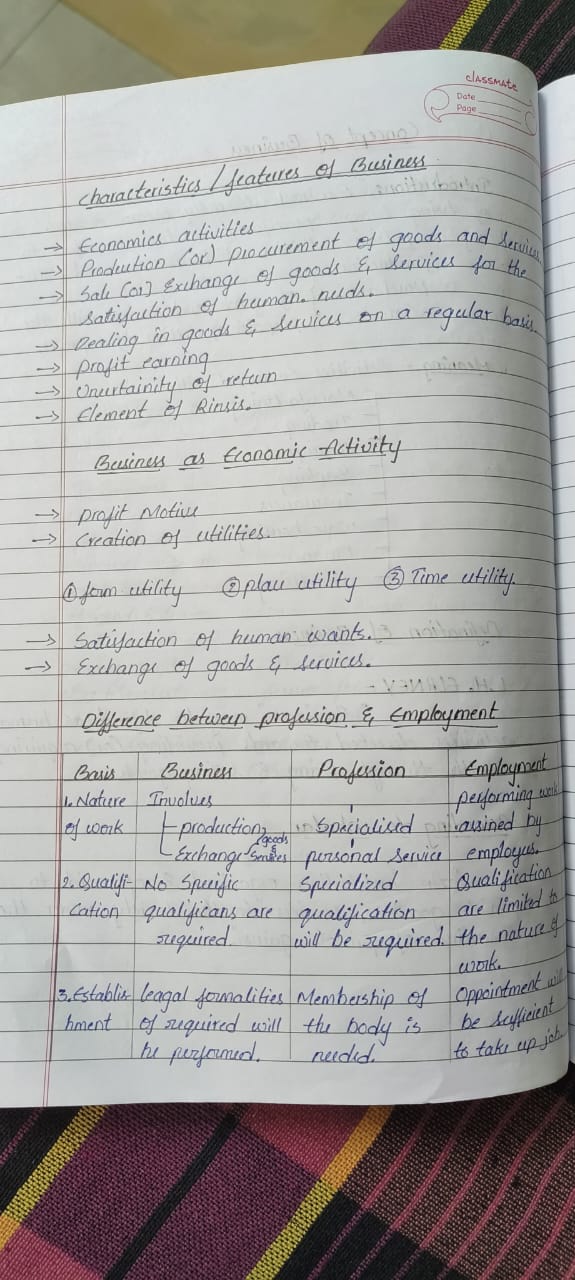 classmate
Date
Page
Characteristics / features of Business
→ Economics activities
→ Production (or) procurement of goods and services
→ Sale (or) Exchange of goods & services for the
satisfaction of human needs.
→ Dealing in goods & services on a regular basis.
→ Profit earning
→ Uncertainity of return
→ Element of
Business as Economic Activity
→ Profit Motive
→ Creation of utilities
① form utility ② place utility ③ Time utility.
→ Satisfaction of human wants.
→ Exchange of goods & services.
Difference between profession & Employment
Basis Business Profession Employment
1. Nature of work
Involves
production,
Exchange goods & services
Specialised
personal service
performing work
assined by
employer.
2. Qualifi-
cation
No Specific
qualificans are
required.
Specialized
qualification
will be required.
Qualification
are limited to
the nature of
work.
3. Establis
hment
leagal formalities
of required will
be performed.
Membership of
the body is
needed.
Oppointment will
be sufficient
to take up job.